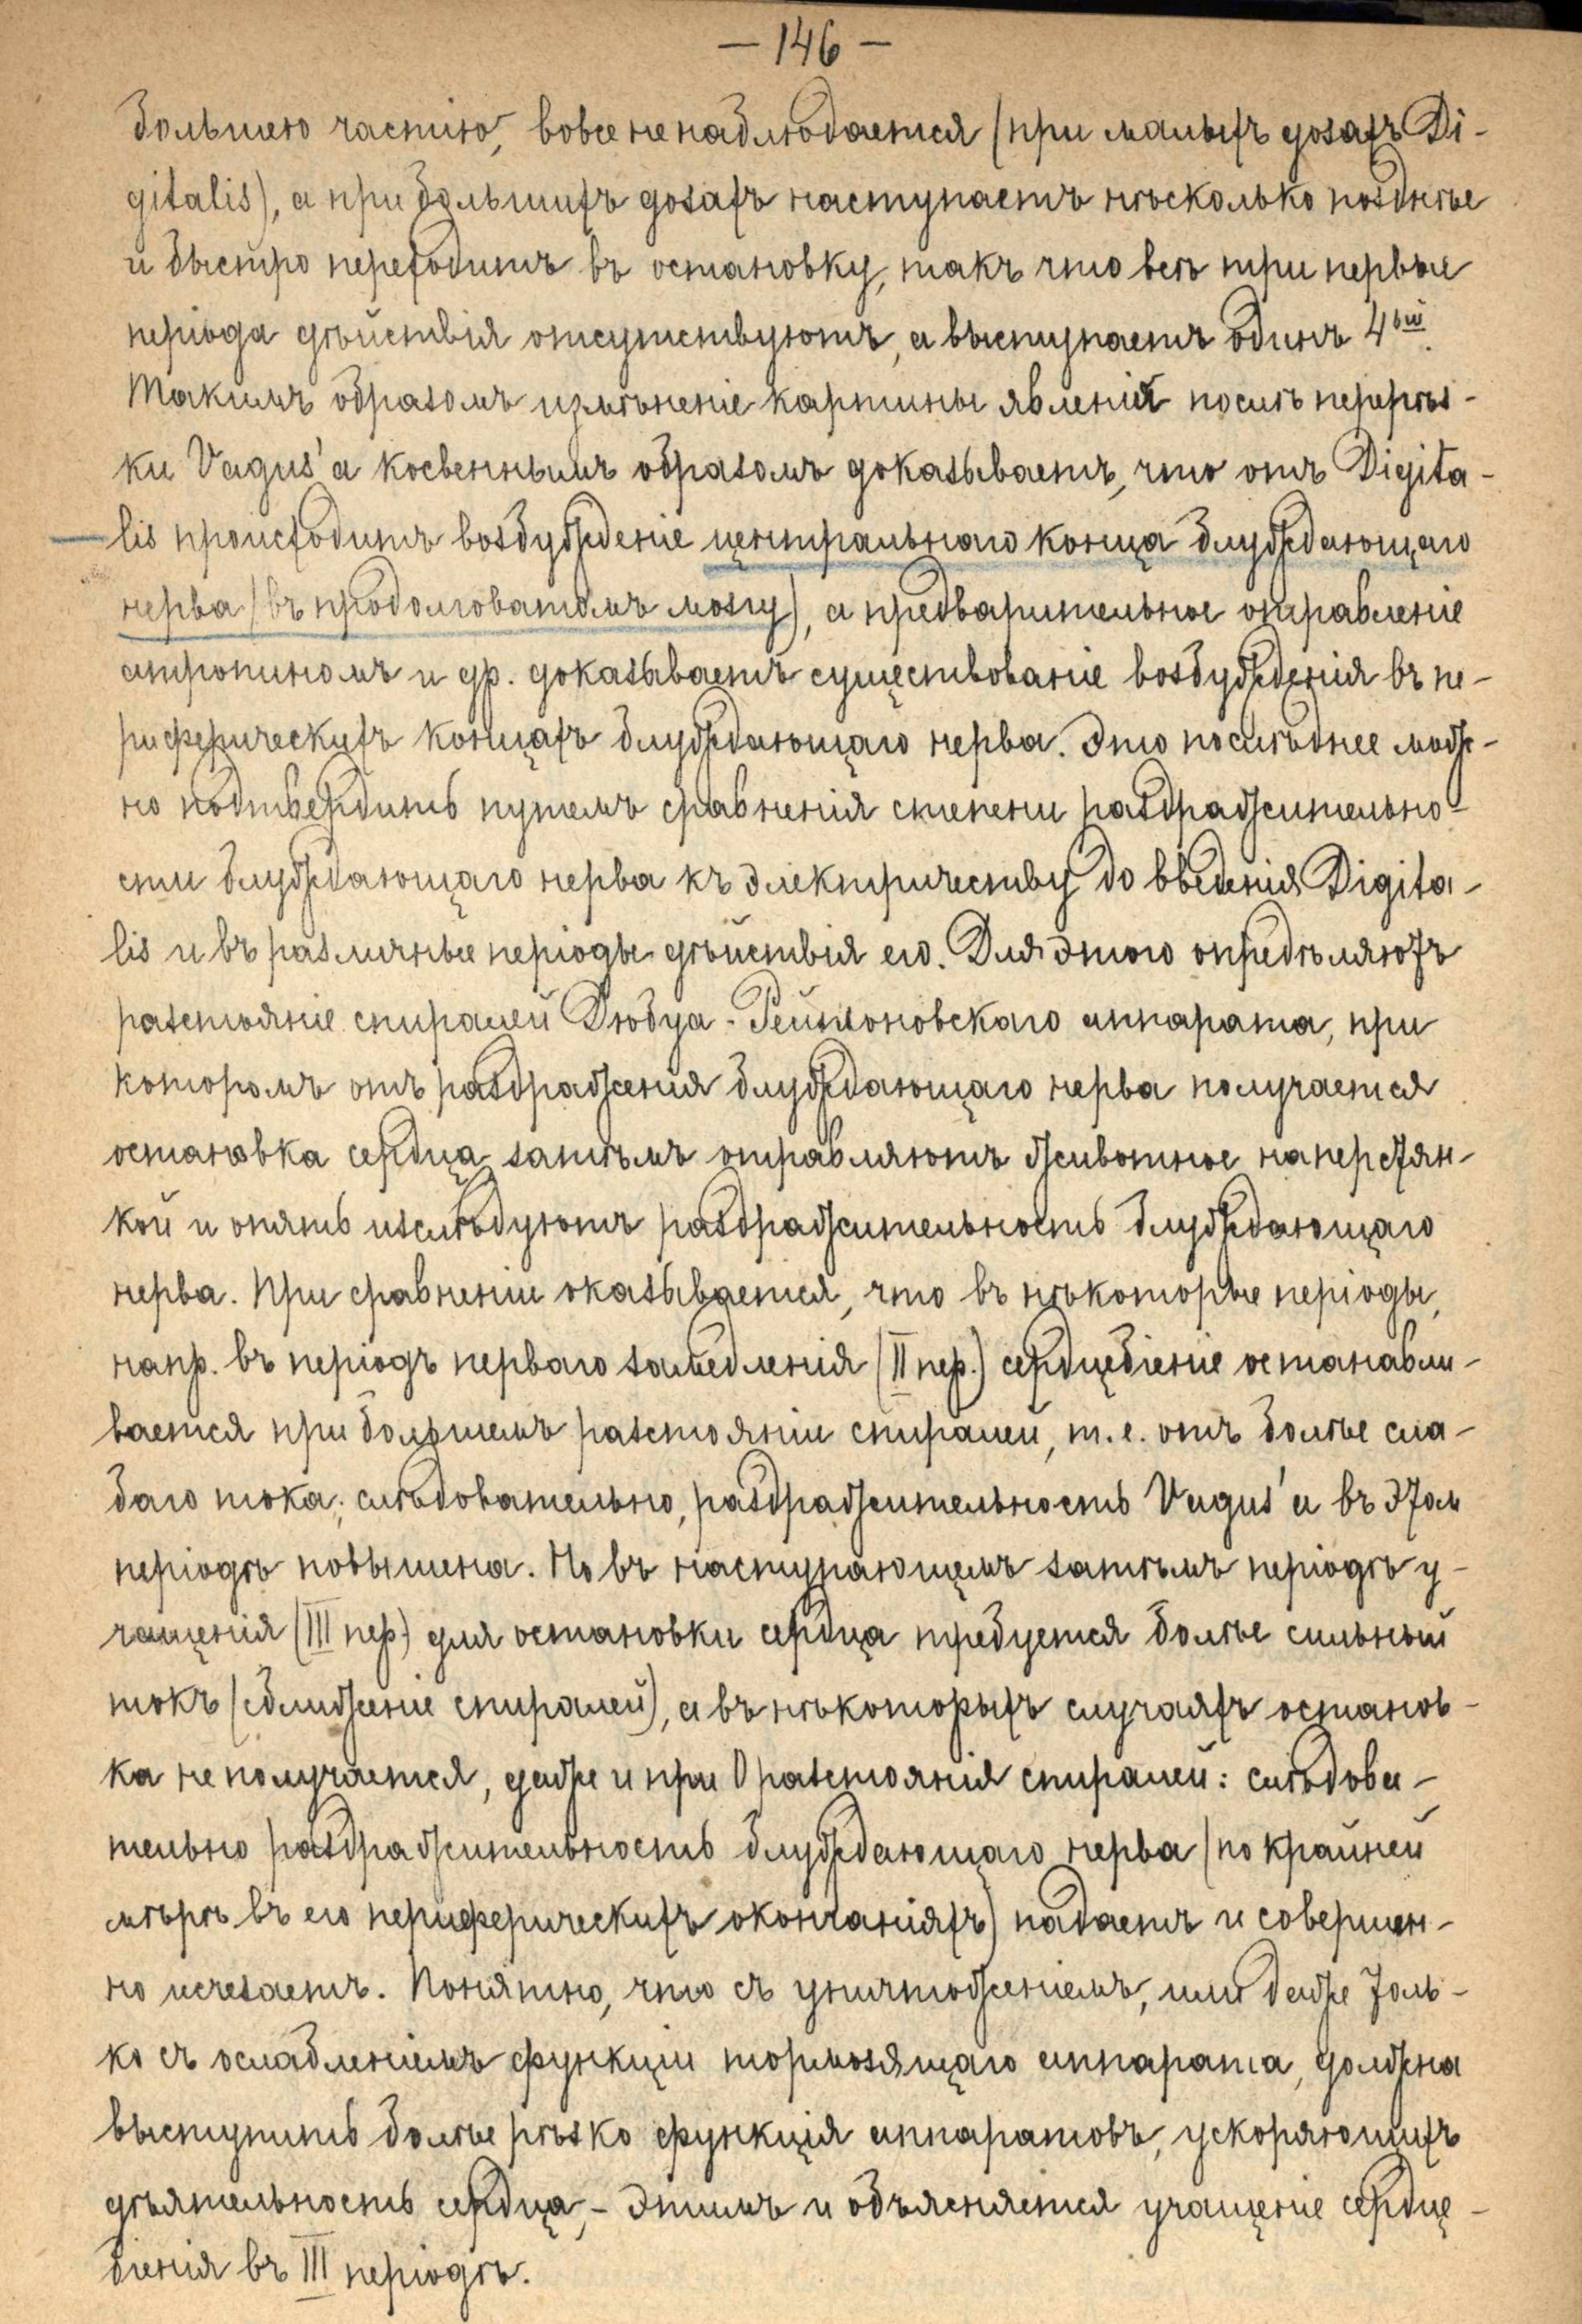 — 146 —
большею частію, вовсе не наблюдается (при малыхъ дозахъ Di-
gitalis), а при большихъ дозахъ наступаетъ нѣсколько позднѣе
и быстро переходитъ въ остановку, такъ что всѣ три первые
періода дѣйствія отсутствуютъ, а выступаетъ одинъ 4ый.
Такимъ образомъ измѣненіе картины явленій послѣ перерѣз-
ки Vagus'а косвеннымъ образомъ доказываетъ, что отъ Digita-
lis происходитъ возбужденіе центральнаго конца блуждающаго
нерва (въ продолговатомъ мозгу), а предварительное отравленіе
атропиномъ и др. доказываетъ существованіе возбужденія въ пе-
риферическихъ концахъ блуждающаго нерва. Это послѣднее мож-
но подтвердить путемъ сравненія степени раздражительно-
сти блуждающаго нерва къ электричеству до введенія Digita-
lis и въ различные періоды дѣйствія его. Для этого опредѣляютъ
разстояніе спиралей Дюбуа-Реймоновскаго аппарата, при
которомъ отъ раздраженія блуждающаго нерва получается
остановка сердца, затѣмъ отравляютъ животное наперстян-
кой и опять изслѣдуютъ раздражительность блуждающаго
нерва. При сравненіи оказывается, что въ нѣкоторые періоды,
напр. въ періодъ перваго замедленія (II пер.) сердцебіеніе останавли-
вается при большемъ разстояніи спиралей, т.е. отъ болѣе сла-
баго тока; слѣдовательно, раздражительность Vagus'а въ этом
періодѣ повышена. Но въ наступающемъ затѣмъ періодѣ у-
чащенія (III пер) для остановки сердца требуется болѣе сильный
токъ (сближеніе спиралей), а въ нѣкоторыхъ случаяхъ останов-
ка не получается, даже и при 0 разстоянія спиралей: слѣдова-
тельно раздражительность блуждающаго нерва (по крайней
мѣрѣ въ его периферическихъ окончаніяхъ) падаетъ и совершен-
но исчезаетъ. Понятно, что съ уничтоженіемъ, или даже толь-
ко съ ослабленіемъ функціи тормозящаго аппарата, должна
выступить болѣе рѣзко функція аппаратовъ, ускоряющихъ
дѣятельность сердца, - этимъ и объясняется учащеніе сердце-
біенія въ III періодѣ.